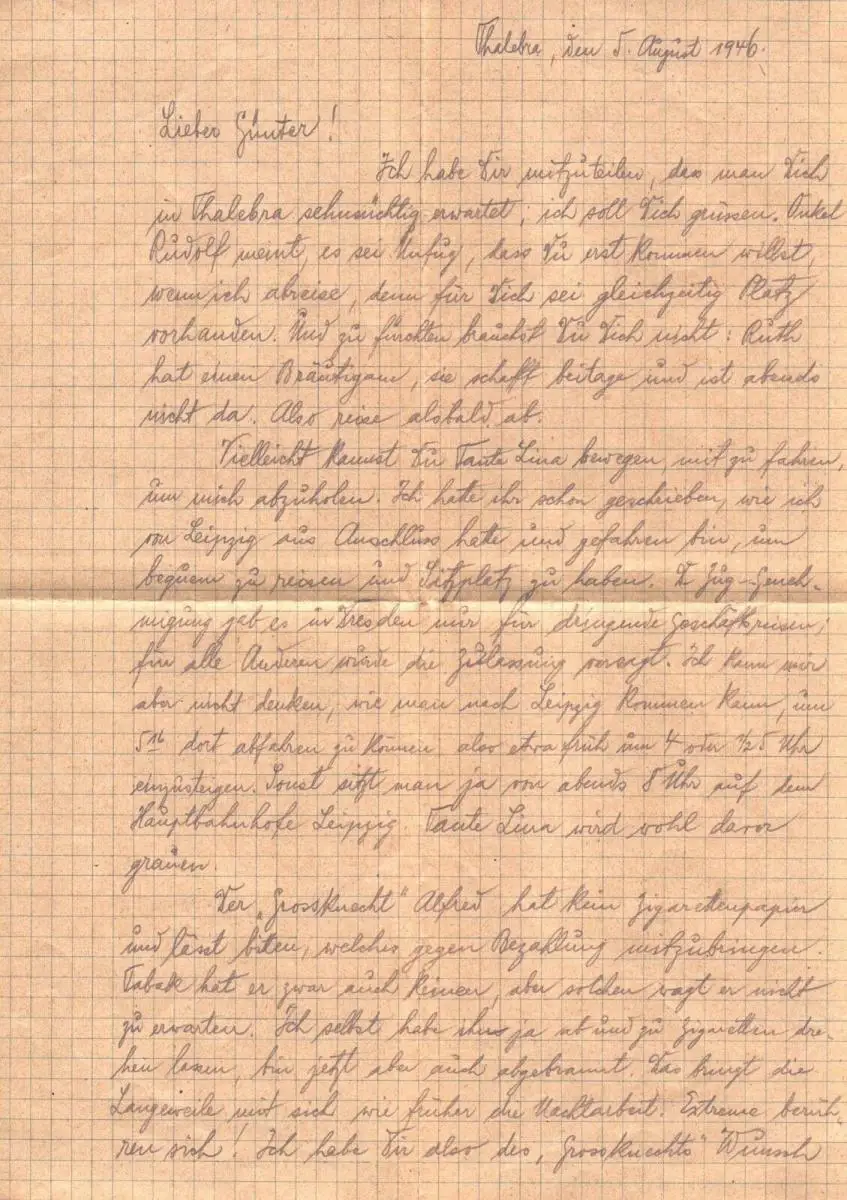 Thalebra, den 5. August 1946.
Lieber Günter!
Ich habe Dir mitzuteilen, das man Dich
in Thalebra sehnsüchtig erwartet; ich soll Dich grüssen. Onkel
Rudolf meint, es sei Unfug, dass Du erst kommen willst,
wenn ich abreise, denn für Dich sei gleichzeitig Platz
vorhanden. Und zu fürchten brauchst Du Dich nicht: Ruth
hat einen Bräutigam, sie schafft beitage und ist abends
nicht da. Also reise alsbald ab.
Vielleicht kannst Du Tante Lina bewegen, mit zu fahren,
um mich abzuholen. Ich hatte ihr schon geschrieben, wie ich
von Leipzig aus Anschluss hatte und gefahren bin, um
bequem zu reisen und Sitzplatz zu haben. D Zug-Geneh-
migung gab es in Dresden nur für dringende Geschäftsreisen;
für alle Anderen wurde die Zulassung versagt. Ich kann mir
aber nicht denken, wie man nach Leipzig kommen kann, um
5 16 dort abfahren zu können also etwa früh um 4 oder 1/2 5 Uhr
einzusteigen. Sonst sitzt man ja von abends 8 Uhr auf dem
Hauptbahnhofe Leipzig. Tante Lina wird wohl davor
grauen.
Der „Grossknecht" Alfred hat kein Zigarettenpapier
und lässt bitten, welches gegen Bezahlung mitzubringen.
Tabak hat er zwar auch keinen, aber solchen wagt er nicht
zu erwarten. Ich selbst habe ihn ja ab und zu Zigaretten dre-
hen lassen, bin jetzt aber auch abgebrannt. Das bringt die
Langeweile mit sich wie früher die Nachtarbeit. Extreme berüh-
ren sich! Ich habe Dir also des „Grossknechts" Wunsch